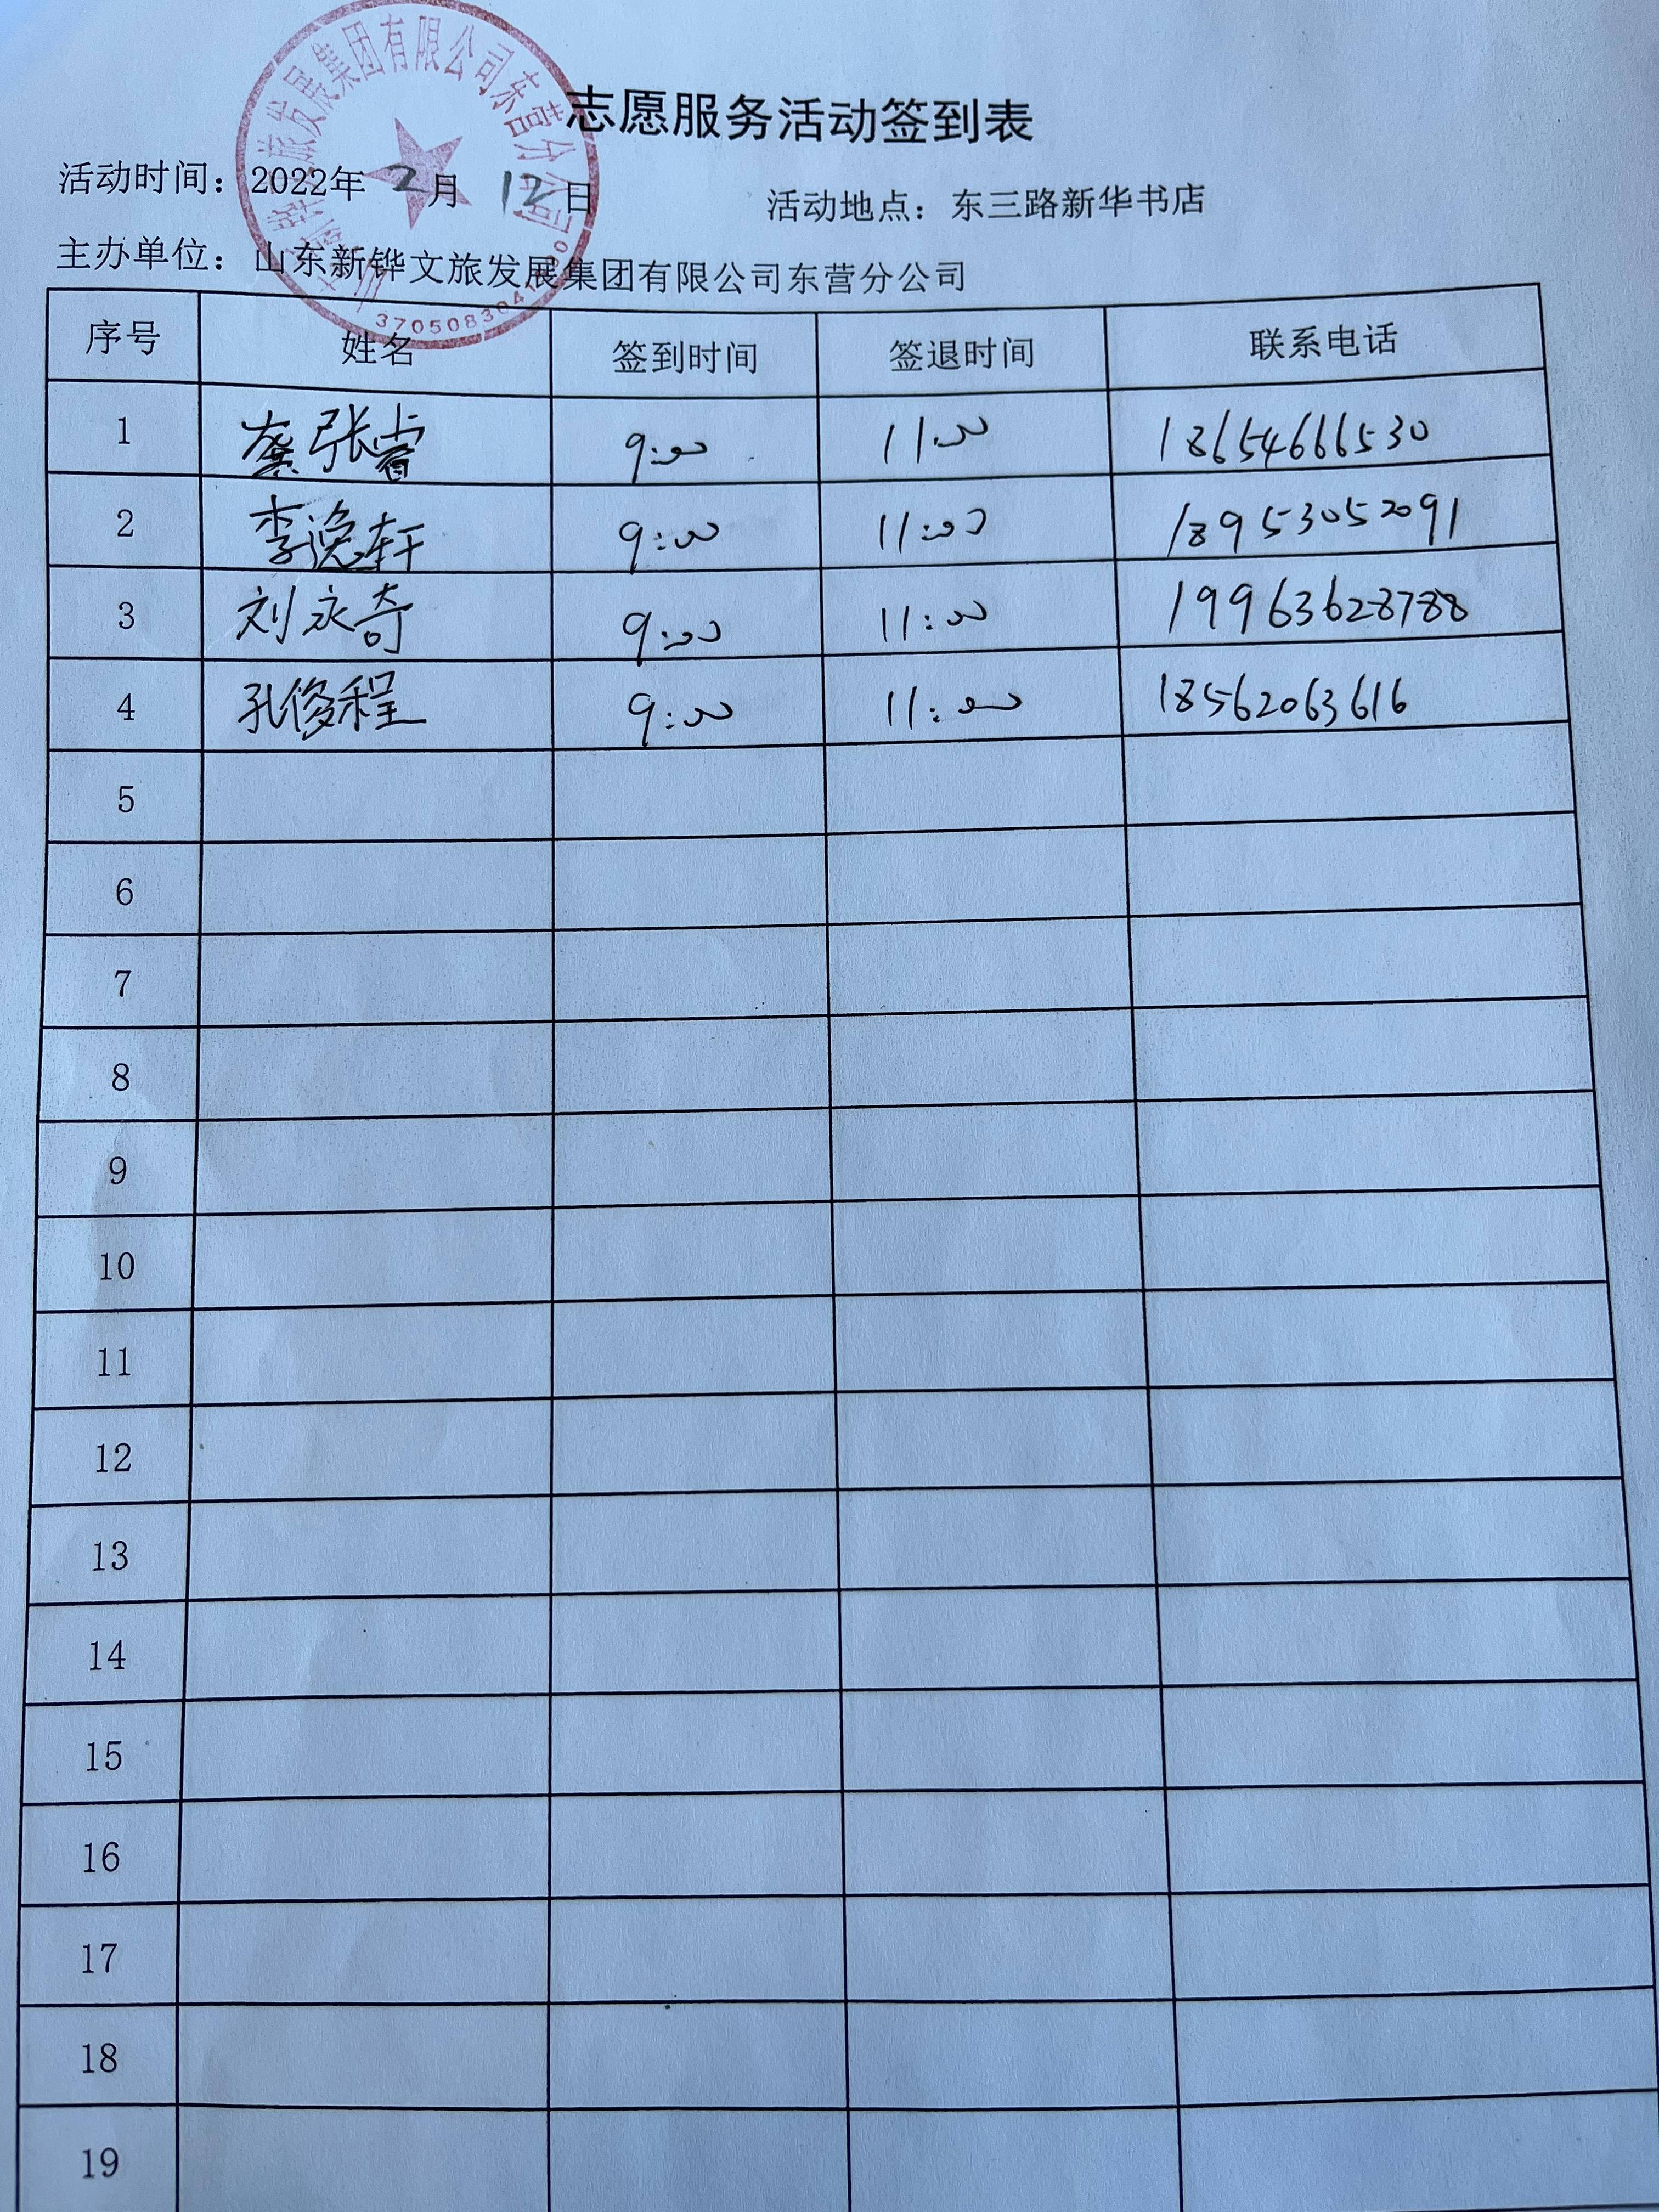 志愿服务活动签到表
活动时间：2022年 2月 12日 活动地点：东三路新华书店
主办单位：山东新铧文旅发展集团有限公司东营分公司
序号 姓名 签到时间 签退时间 联系电话
1 龚张睿 9:00 11:00 18654666530
2 李逸轩 9:00 11:00 18953052091
3 刘永奇 9:00 11:00 19963628788
4 孔俊程 9:00 11:00 18562063616
5
6
7
8
9
10
11
12
13
14
15
16
17
18
19
旅发展集团有限公司东营分公司